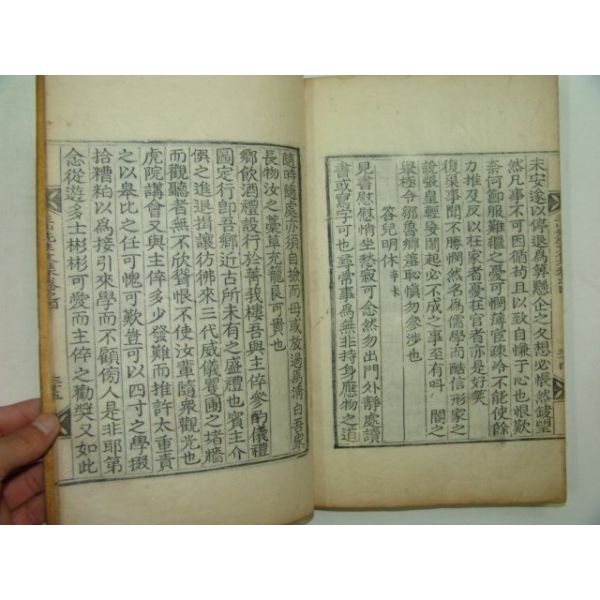 未安遂以停退爲算懸企之久想必悵然缺望
然凡事不可因循苟且以致自慊于心也恨歎
奈何卸服難繼之憂可憫薄宦疎冷不能使餘
力推及反以在家者憂在官者亦是好笑
復渠事聞不勝憫然名爲儒學而酷信形家之
說張皇輕發鬧起必不成之事至有呌閽之
擧極令鄒魯鄕羞恥愼勿參涉也
容兒明休辛未
見書慰慰情坐愁寂可念然勿出門外靜處讀
書或寫字可也與尋常事爲無非持身應物之道
隨時隨處亦須自撿而毋或放過爲淸白吾家
長物汝之藁草充籠良可貴也
鄕飮酒禮設行於菁我樓吾與主倅參酌儀禮
圖定行卽吾鄕近古所未有之盛禮也賓主介
僎之進退揖讓彷彿來三代威儀矍圃之堵墻
而觀聽者無不欣聳恨不使汝輩隨衆觀光也
虎院講會又與主倅多少發難而推許太重責
之以皐比之任可愧可歎豈可以四寸之學掇
拾糟粕以爲接引來學而不顧傍人是非耶第
念從遊多士彬彬可愛而主倅之勸奬又如此